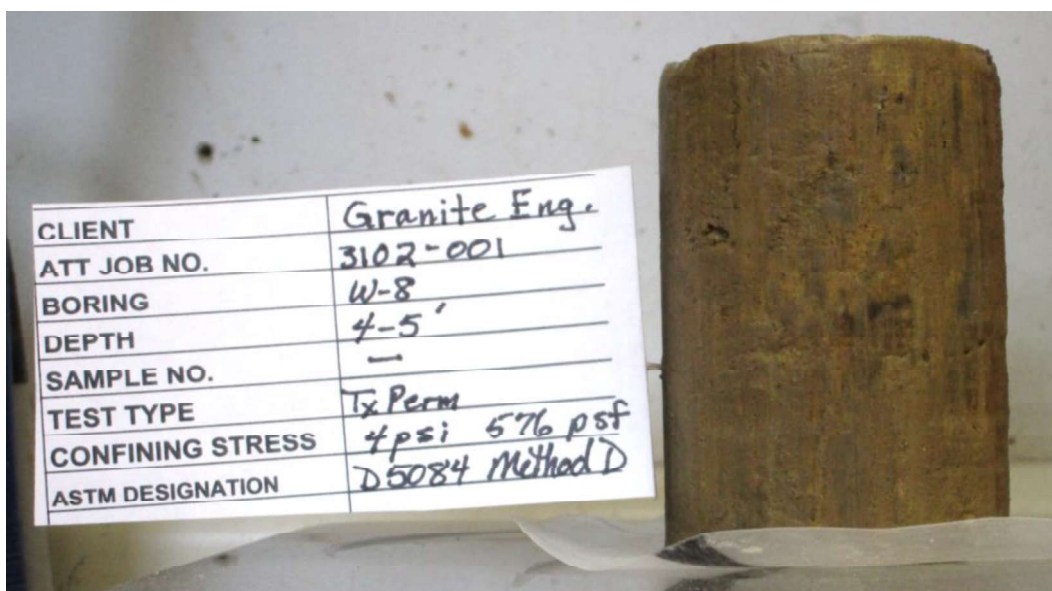 CLIENT Granite Eng.
ATT JOB NO. 3102-001
BORING W-8
DEPTH 4-5'
SAMPLE NO. —
TEST TYPE Tx Perm
CONFINING STRESS 4psi 576 psf
ASTM DESIGNATION D5084 Method D